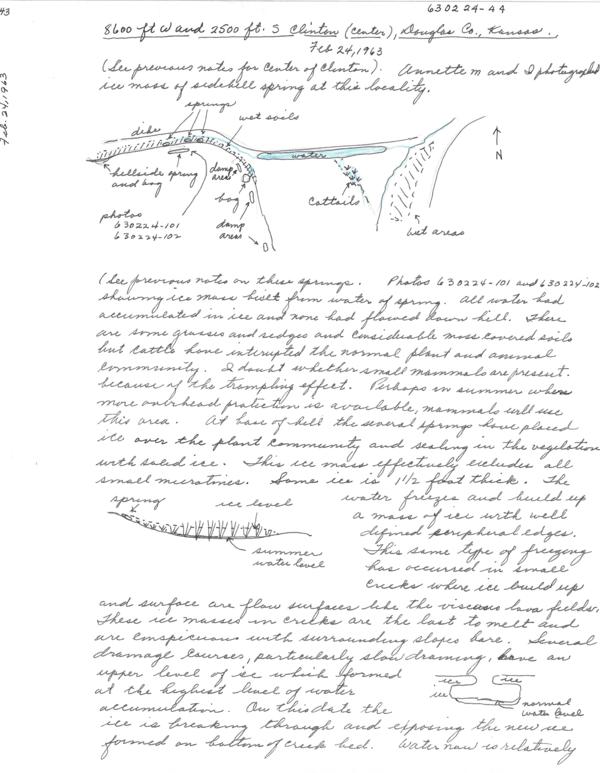 630224-A4
43
8600 ft W and 2500 ft. S Clinton (center), Douglas Co., Kansas.,
Feb 24, 1963
Feb. 24, 1963
(See previous notes for center of Clinton). Annette M and I photographed
ice mass of sidehill spring at this locality.
springs
dike
wet soils
water
N
hillside spring
and bog
damp
area
bog
Cattails
photos
630224-101
630224-102
damp
areas
wet areas
(See previous notes on these springs. Photos 630224-101 and 630224-102
showing ice mass built from water of spring. All water had
accumulated in ice and none had flowed down hill. There
are some grasses and sedges and considerable moss covered soils
but cattle have interupted the normal plant and animal
community. I doubt whether small mammals are present
because of the trampling effect. Perhaps in summer when
more overhead protection is available, mammals will use
this area. At base of hill the several springs have placed
ice over the plant community and sealing in the vegetation
with solid ice. This ice mass effectively excludes all
small microtines. Some ice is 1 1/2 foot thick. The
spring
ice level
water freezes and build up
a mass of ice with well
defined peripheral edges.
summer
water level
This same type of freezing
has occurred in small
creeks where ice build up
and surface are flow surfaces like the viscous lava fields.
These ice masses in creeks are the last to melt and
are conspicuous with surrounding slopes bare. Several
drainage courses, particularly slow draining, have an
upper level of ice which formed
at the highest level of water
accumulation. On this date the
ice
ice
ice
normal
water level
ice is breaking through and exposing the new ice
formed on bottom of creek bed. Water now is relatively